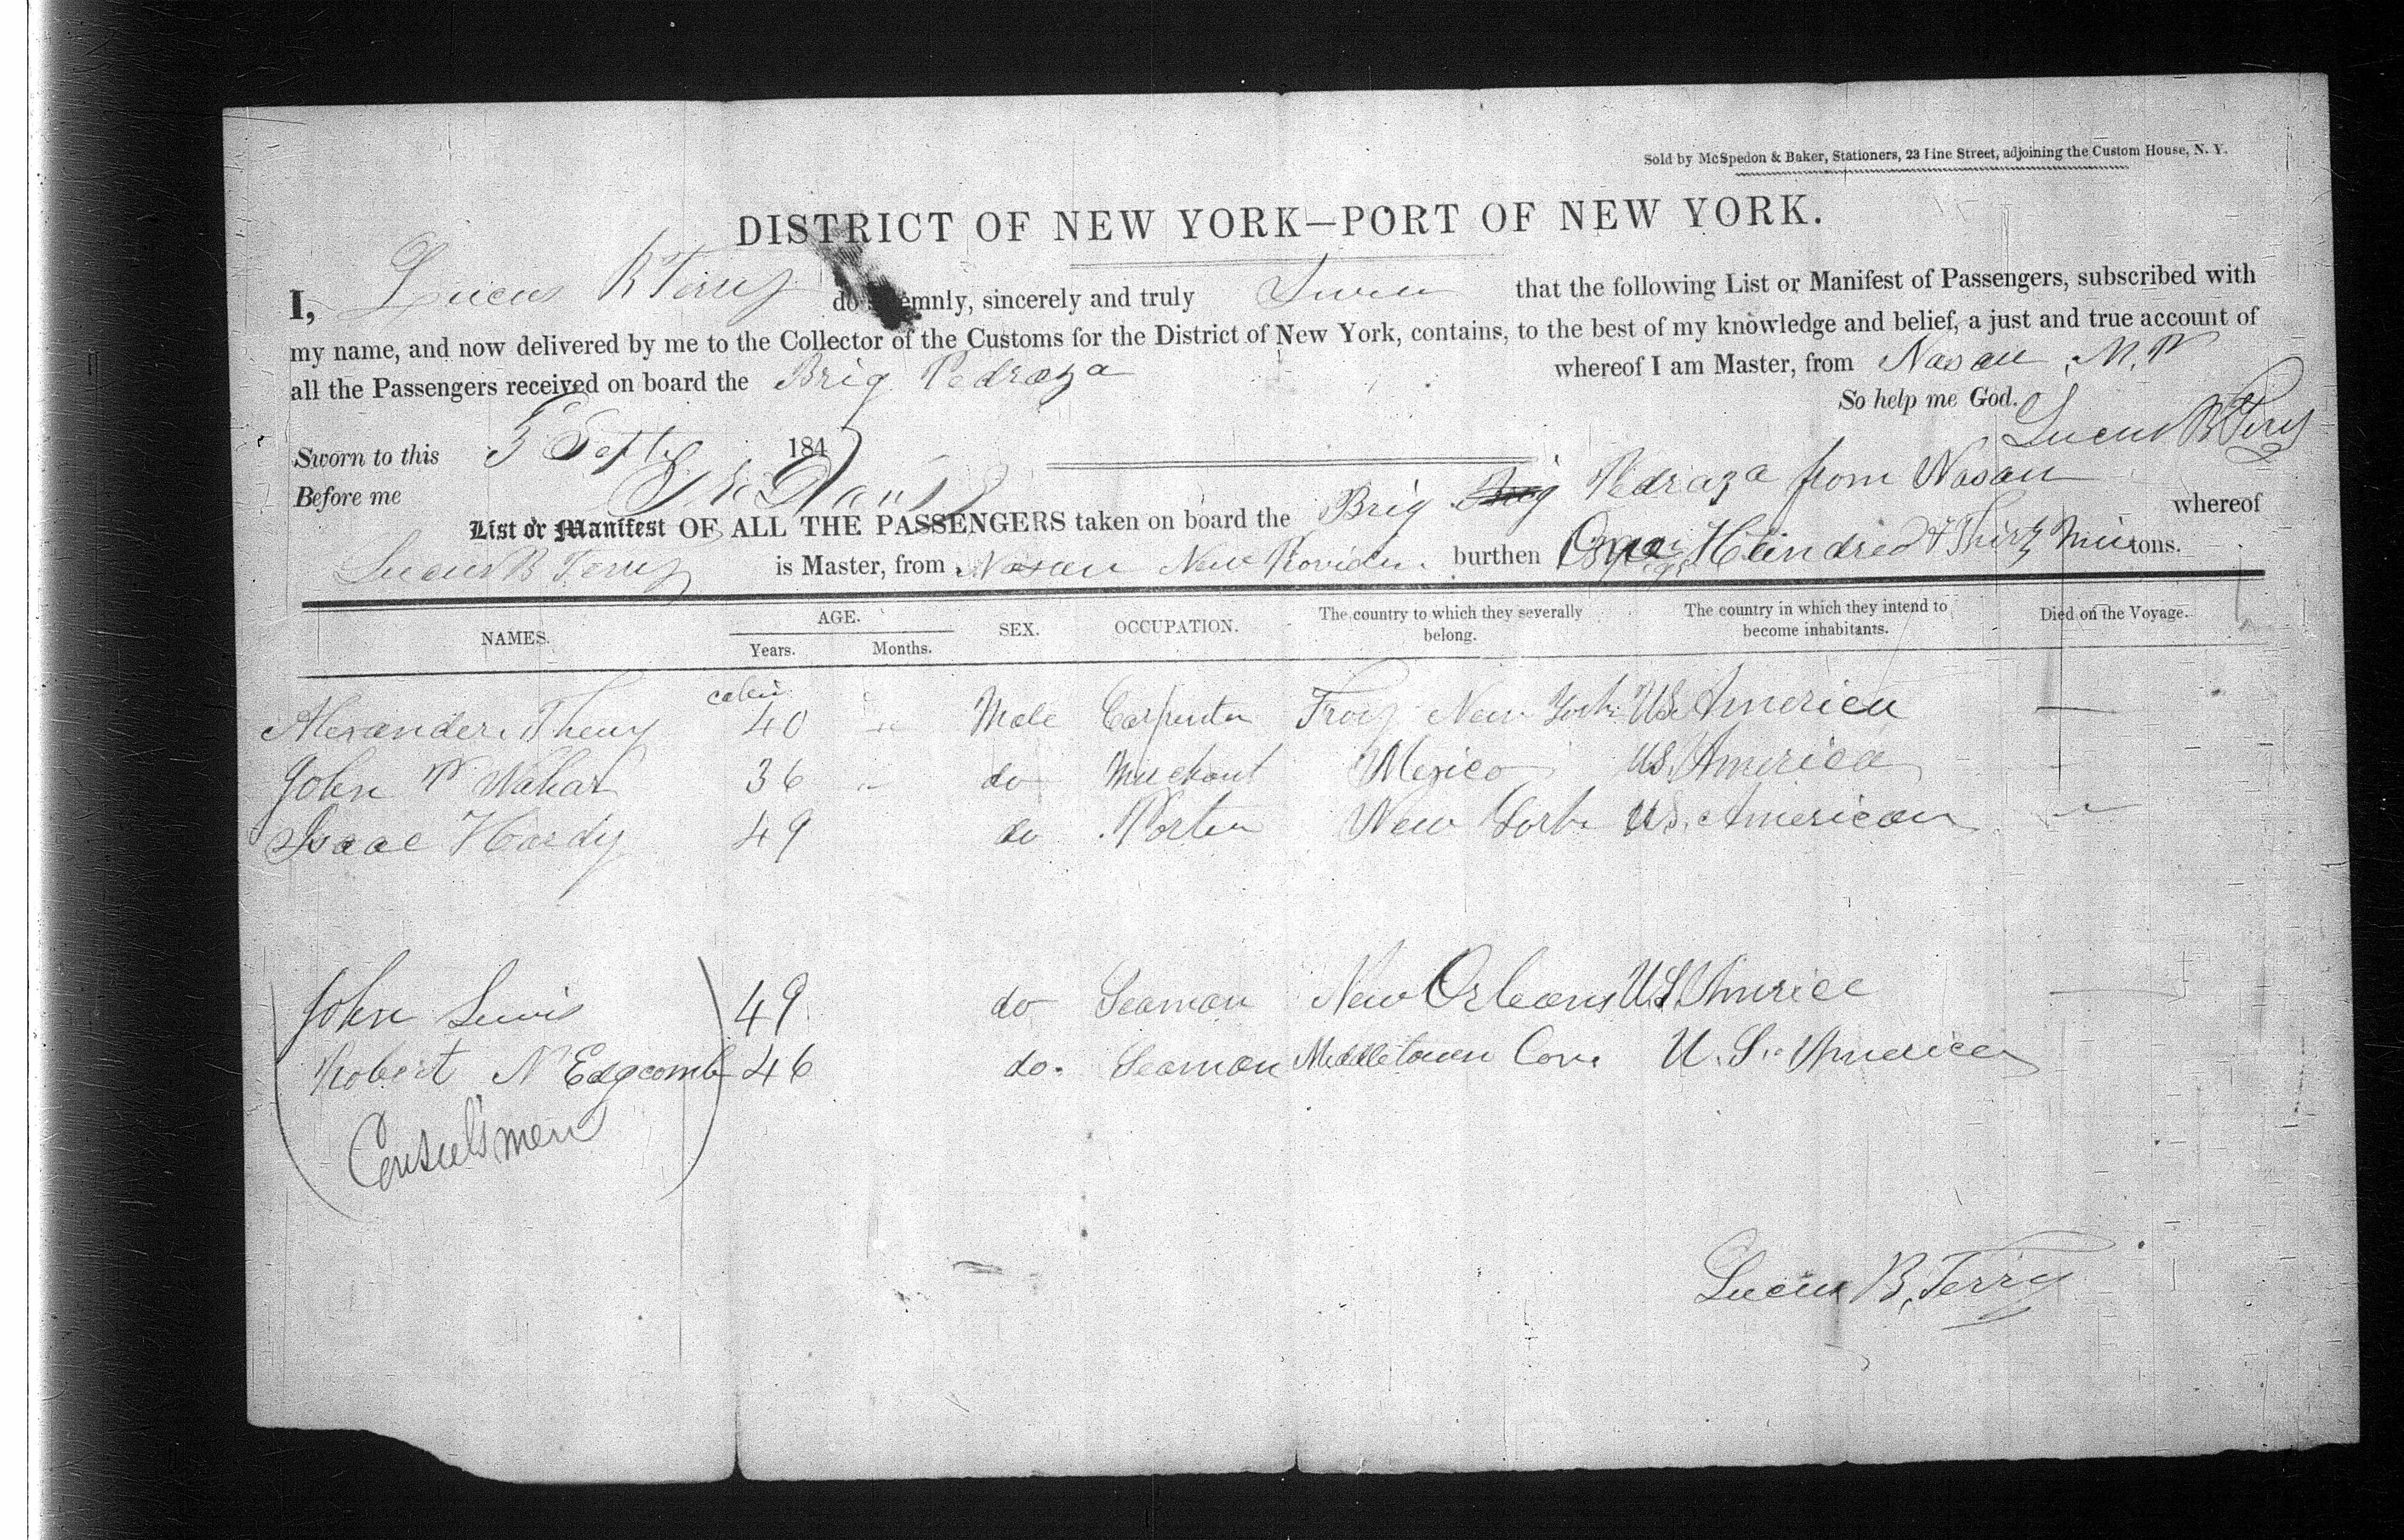 Sold by McSpedon & Baker, Stationers, 23 Pine Street, adjoining the Custom House, N. Y.
DISTRICT OF NEW YORK—PORT OF NEW YORK.
I, Lucus B Terry do solemnly, sincerely and truly Swear that the following List or Manifest of Passengers, subscribed with
my name, and now delivered by me to the Collector of the Customs for the District of New York, contains, to the best of my knowledge and belief, a just and true account of
all the Passengers received on board the Brig Pedraza whereof I am Master, from Nasau N.P
So help me God. Lucus B Terry
Sworn to this 5 Septr 184
Before me
List or Manifest OF ALL THE PASSENGERS taken on board the Brig Pedraza from Nasau whereof
Lucus B Terry is Master, from Nasau New Providen burthen One Hundred & Thirty tons.
NAMES. AGE. Years. Months. SEX. OCCUPATION. The country to which they severally belong. The country in which they intend to become inhabitants. Died on the Voyage.
cabin
Alexander 40 Male Carpenter Troy New York US America
John P 36 do Merchant Mexico US America
Isaac Hardy 49 do Porter New York US. American
John Lewis 49 do Seaman New Orleans US America
Robert N Edgcomb 46 do. Seaman Middletown Con. U. S. America
Consul's men
Lucus B. Terry